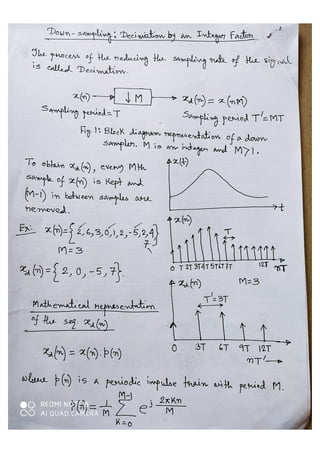 Down-sampling: Decimation by an Integer Factor.
The process of the reducing the sampling rate of the signal
is called Decimation.
x(n) → ↓ M → xd(n) = x(nM)
Sampling period = T
Sampling period T' = MT
Fig. 1: Block diagram representation of a down
sampler. M is an integer and M>1.
To obtain xd(n), every Mth
sample of x(n) is kept and
(M-1) in between samples are
removed.
Ex: x(n)={2,6,3,0,1,2,-5,2,4,
7}
M=3
xd(n)={2, 0, -5, 7}.
Mathematical representation
of the seq. xd(n)
xd(n) = x(n). p(n)
x(t)
t
x(n)
T
0 T 2T 3T 4T 5T 6T 7T 12T nT
xd(n) M=3
T'=3T
0 3T 6T 9T 12T
nT'
where p(n) is a periodic impulse train with period M.
p(n) = 1/M Σ_{k=0}^{M-1} e^{j 2πkn/M}
REDMI
AI QUAD CAMERA